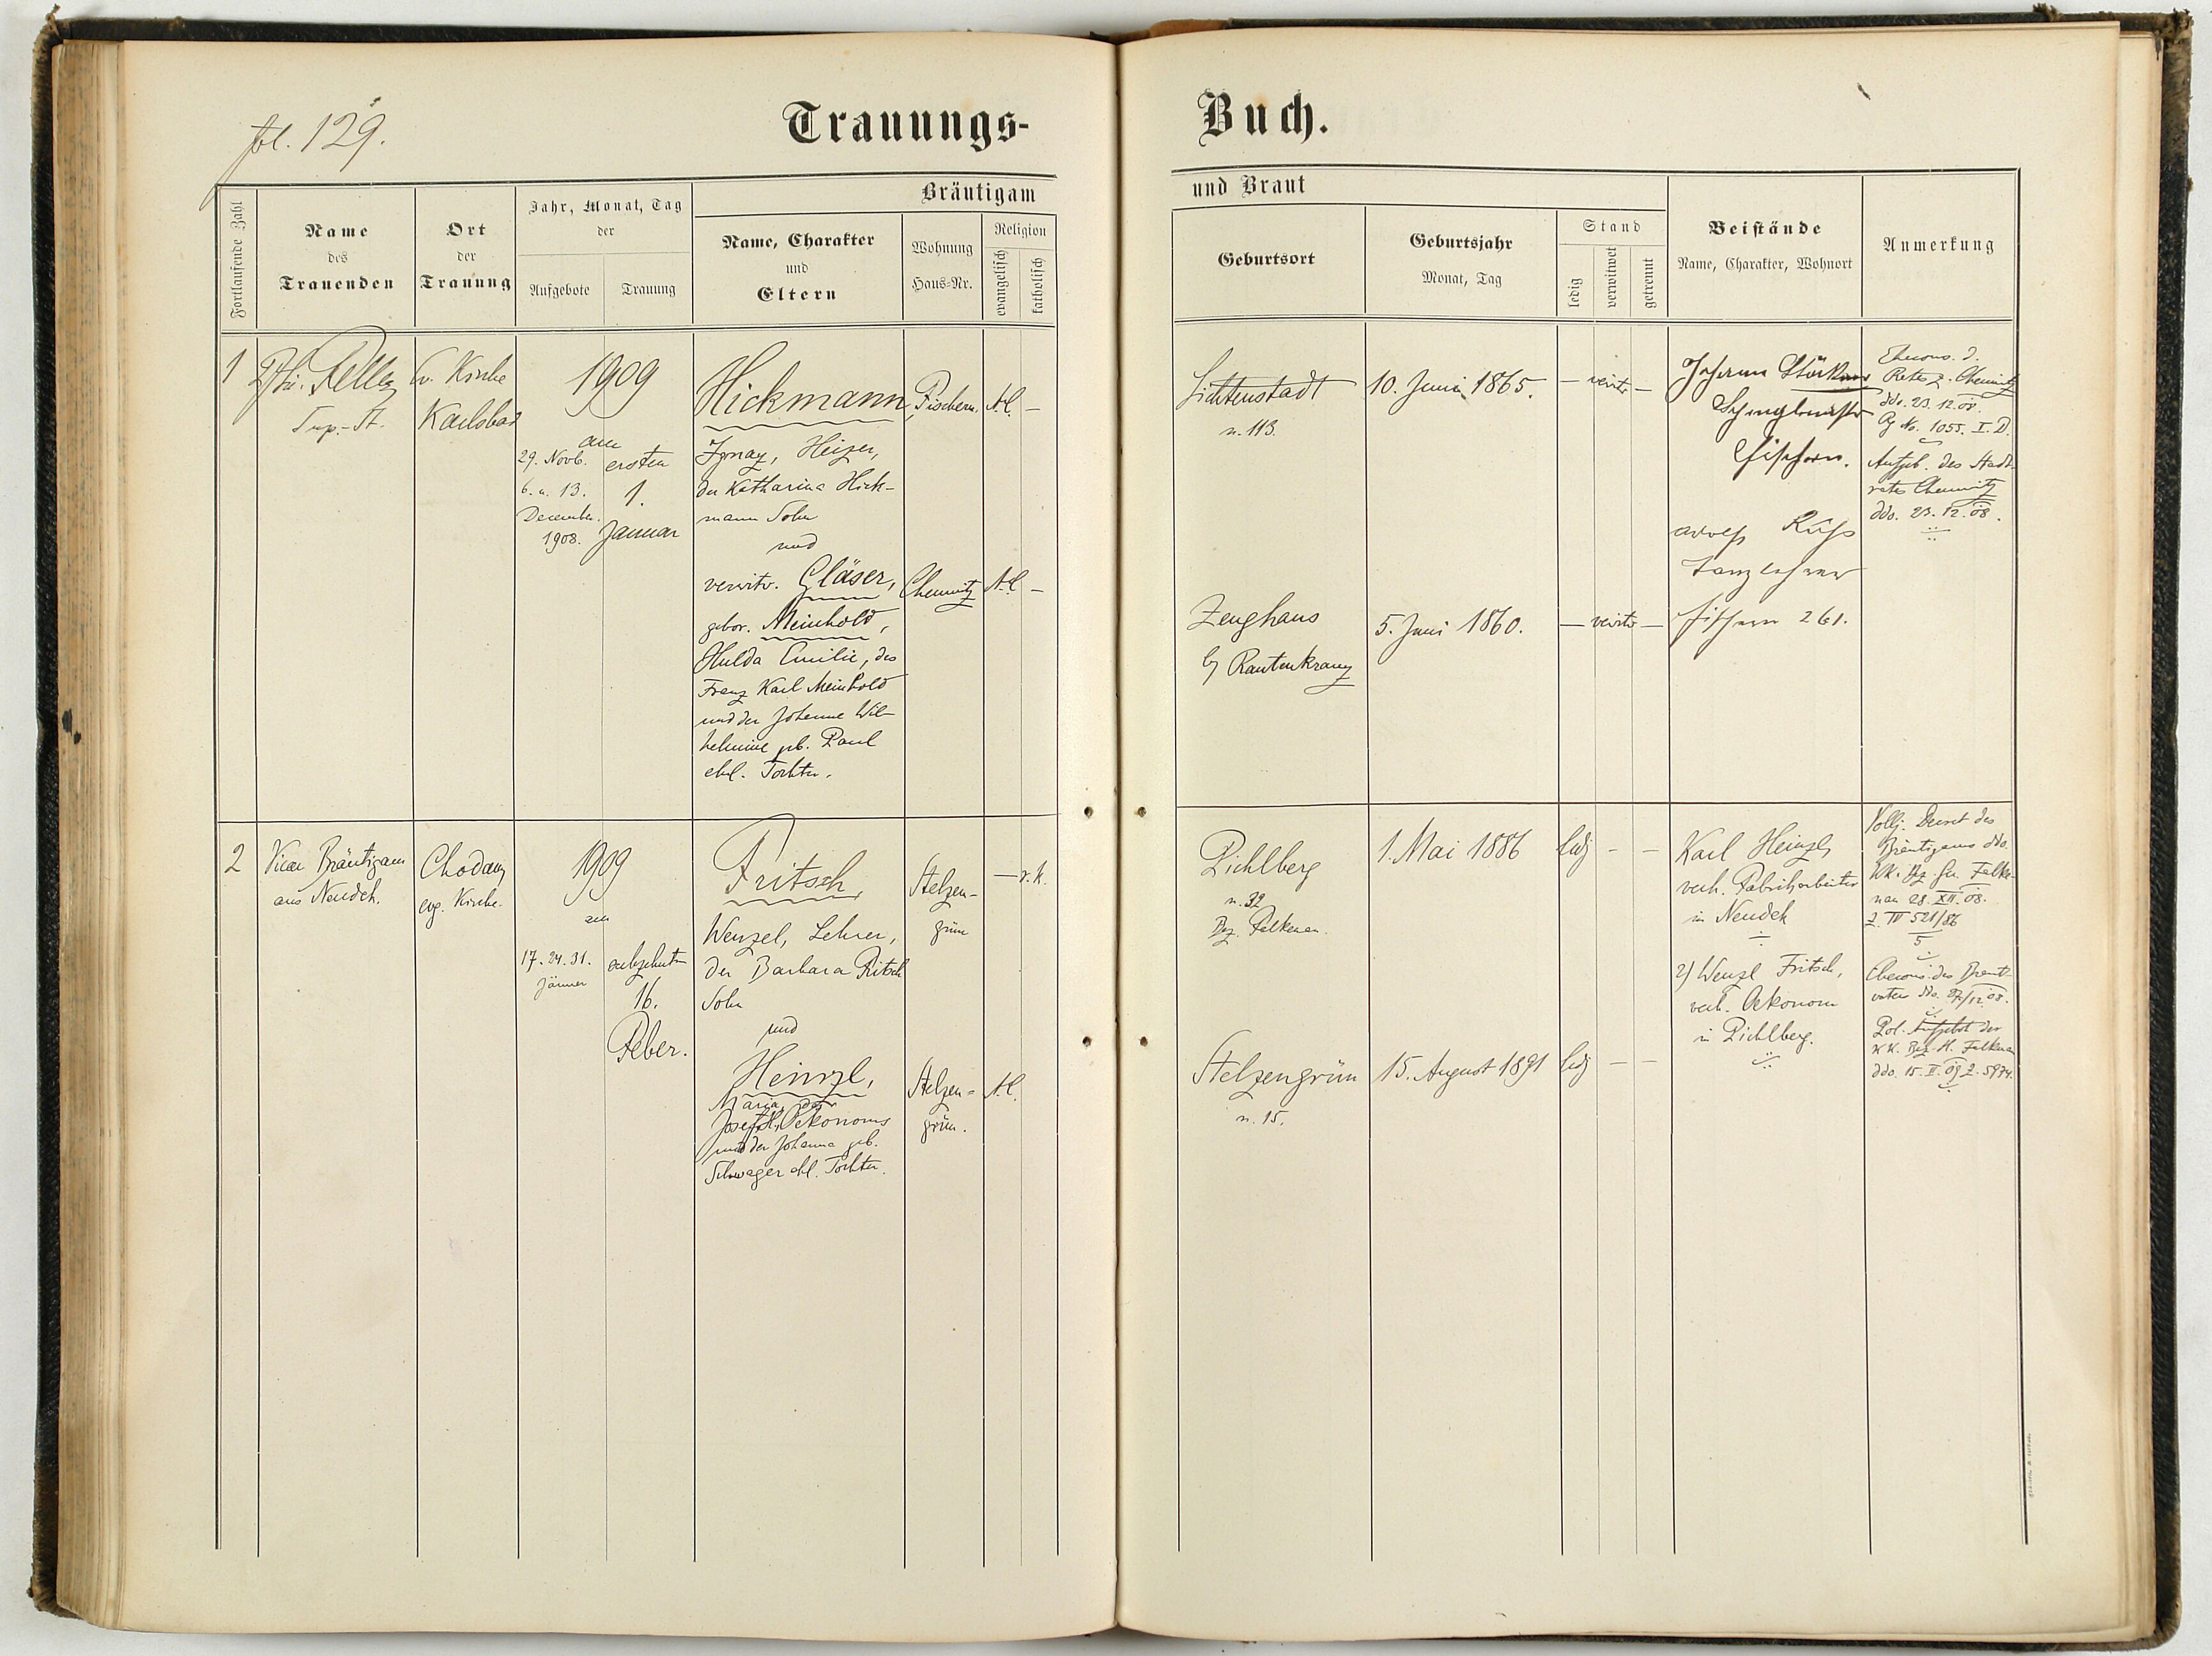 fol. 129.
Trauungs-
Buch.
Fortlaufende Zahl
Name
des
Trauenden
Ort
der
Trauung
Jahr, Monat, Tag
der
Aufgebote
Trauung
Bräutigam
Name, Charakter
und
Eltern
Wohnung
Haus-Nr.
Religion
evangelisch
katholisch
und Braut
Geburtsort
Geburtsjahr
Monat, Tag
Stand
ledig
verwitwet
getrennt
Beistände
Name, Charakter, Wohnort
Anmerkung
1
Feller
Sup.-St.
Kirche
Karlsbad
1909
am
29. Novb.
6. u. 13.
December.
1908.
ersten
1.
Januar
Hickmann
Ignaz, Heizer,
der Katharina Hick-
mann Sohn
und
verwitw. Gläser,
gebor. Meinhold,
Hulda Emilie, des
Franz Karl Meinhold
und der Johanne Wil-
helmine gb. Paul
ehel. Tochter.
Fischern.
A.C. —
Chemnitz
A.C. —
Lichtenstadt
n. 113.
10. Juni 1865.
— verwitw —
Zeughaus
b/ Rautenkranz
5. Juni 1860.
— verwitw —
Johann
Fischern.
Adolf Ruß
Tanzlehrer
Fischern 261.
Rates z. Chemnitz
ddo. 23. 12. 08.
No. 1055. I. D.
Aufgeb. des Stadt-
rates Chemnitz
ddo. 23. 12. 08.
2
Vicar Bräutigam
aus Neudek.
Chodau
evg. Kirche.
1909
am
17. 24. 31.
Jänner
sechzehnten
16.
Feber.
Fritsch,
Wenzel, Lehrer,
der Barbara Fritsch
Sohn
und
Heinzl,
Maria, des
Josef H., Oekonoms
und der Johanna gb.
Schwager ehl. Tochter.
Stelzen-
grün
— r. k.
Stelzen-
grün.
A.C.
Pichlberg
n. 32
Bez. Falkenau.
1. Mai 1886
ledig — —
Stelzengrün
n. 15.
15. August 1891
ledig — —
Karl Heinzl,
verh. Fabriksarbeiter
in Neudek
2) Wenzl Fritsch,
verh. Oekonom
in Pichlberg.
Vollj. Decret des
Bräutigams ddo.
KK. Bz. Ger. Falke-
nau 28. XII. 08.
Z. IV 521/86
5
Ehecons. des Braut-
vaters ddo. 27/12 08.
Pol. Aufgebot der
KK. Bez. H. Falkenau
ddo. 15. II. 09 Z. 5974.